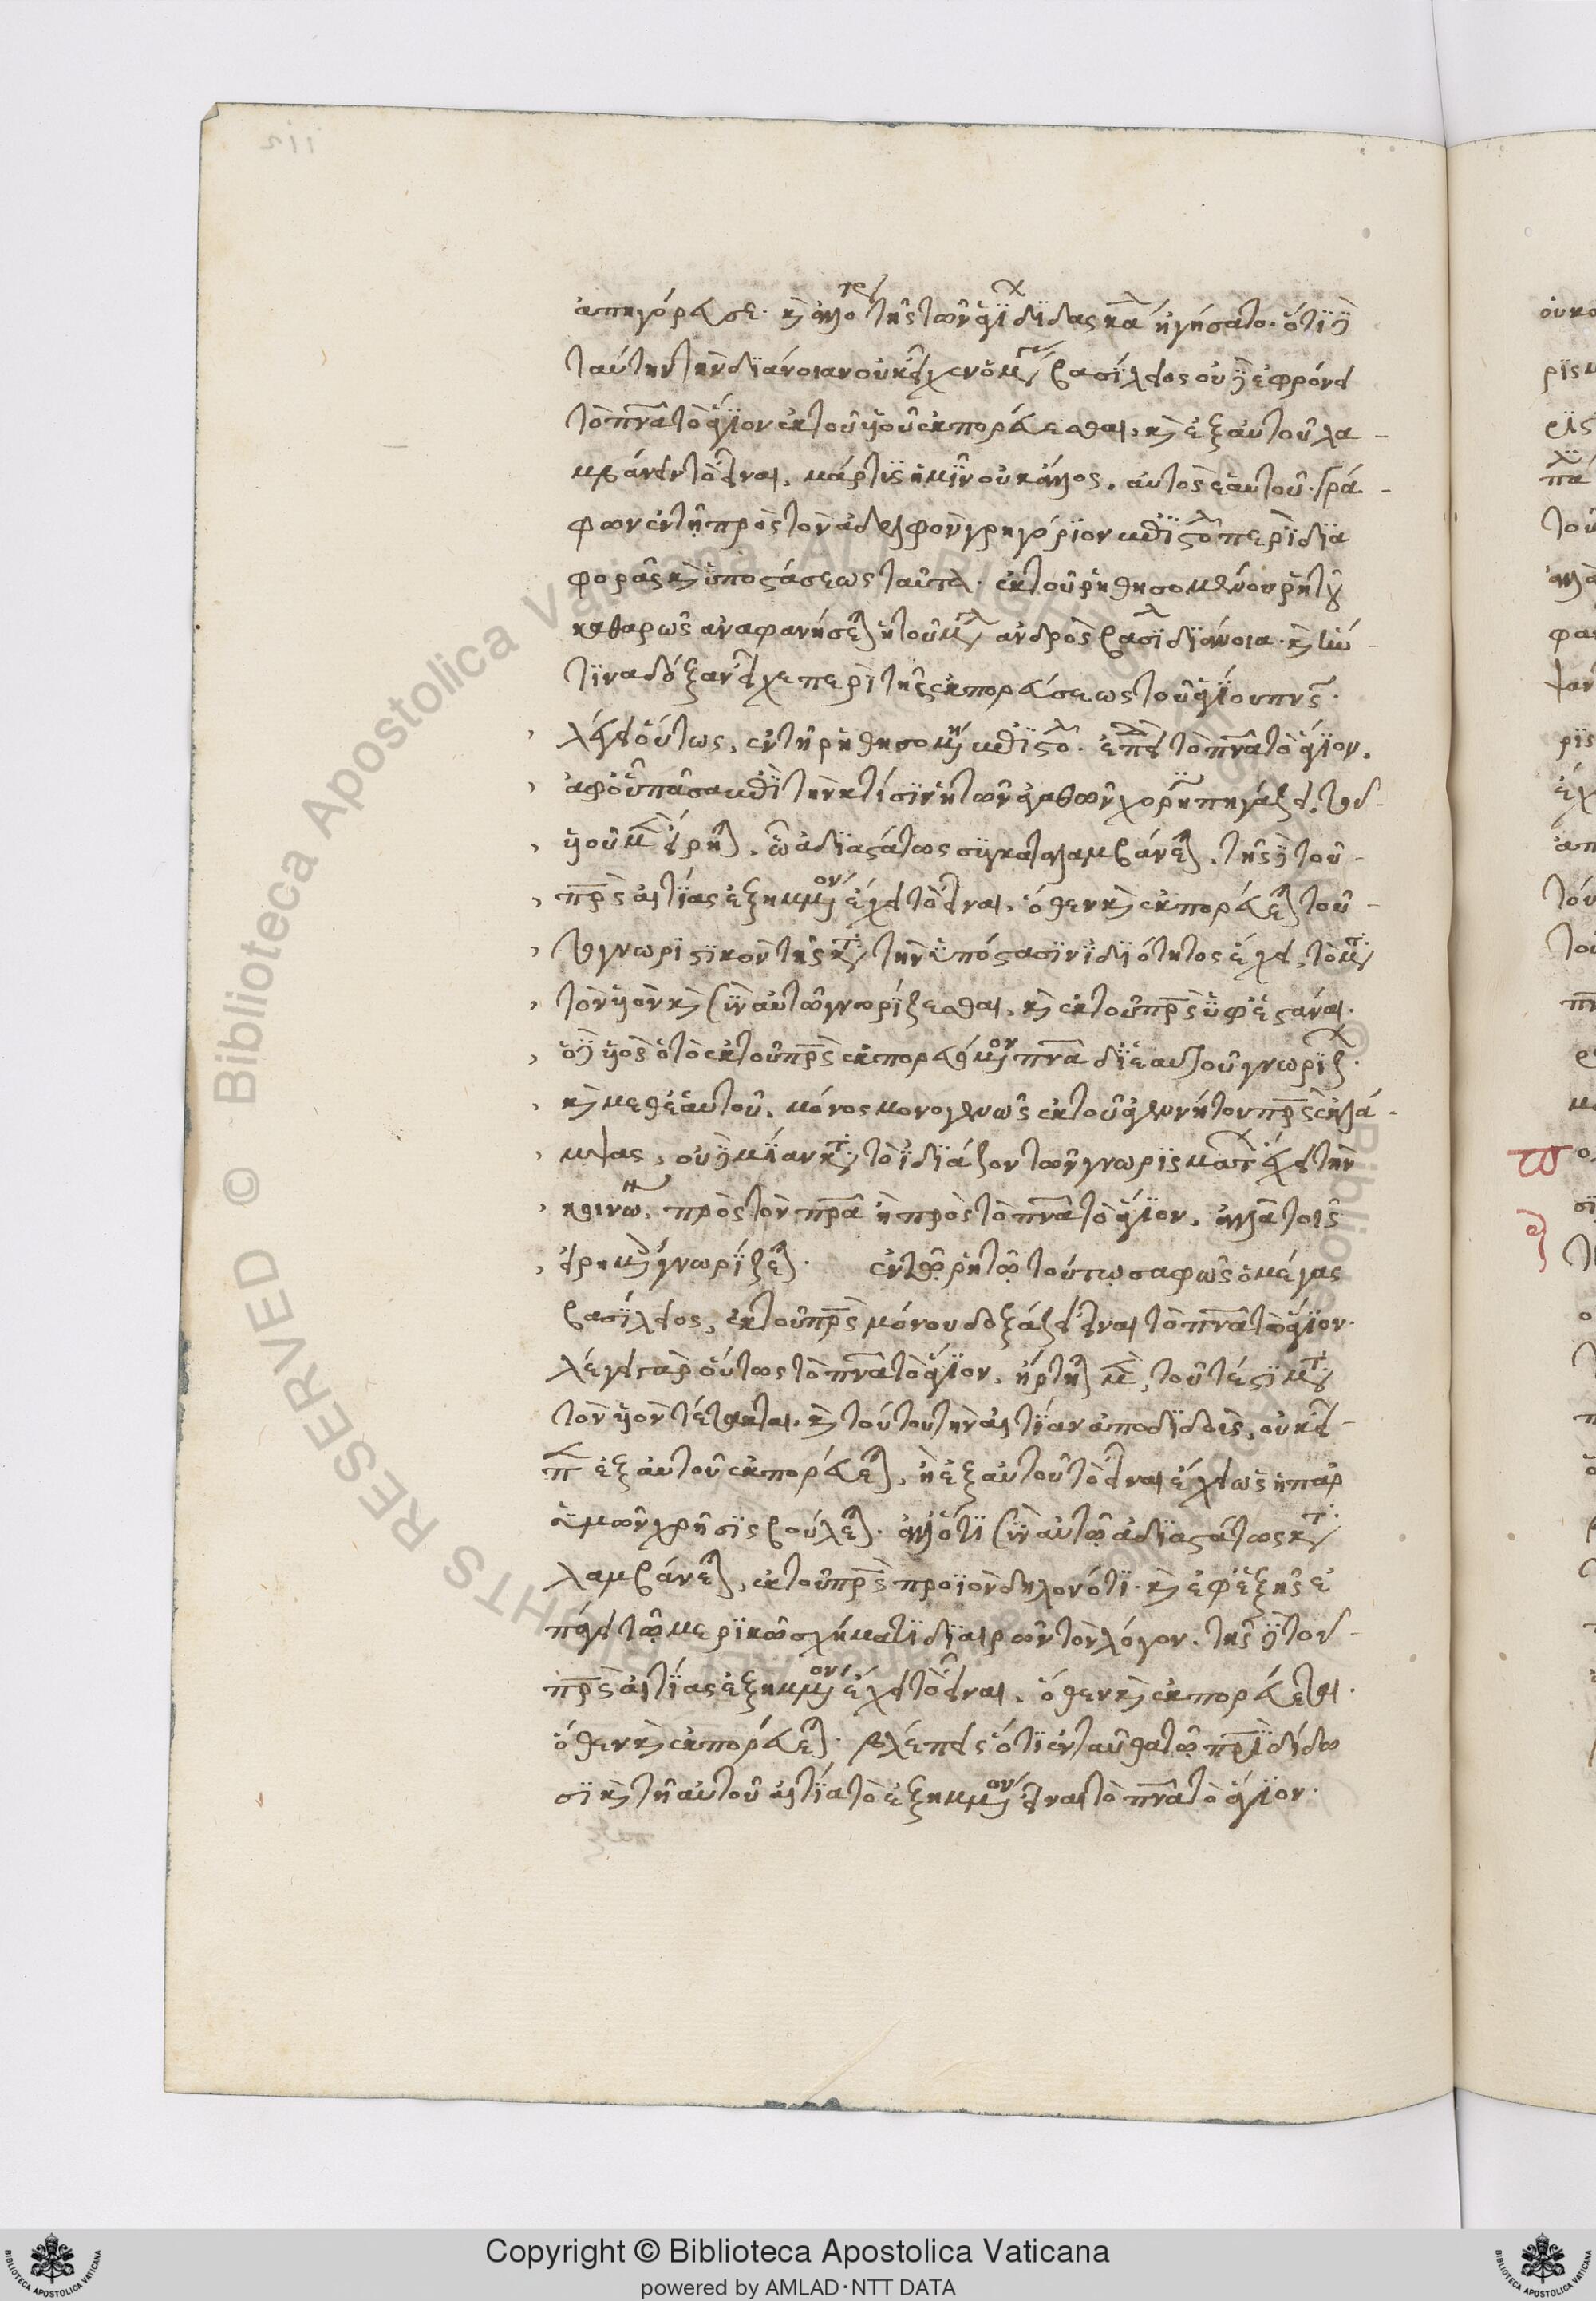 ἀπηγόρευσε· καὶ ἀλλοτρί τῆς τῶν ἁγί διδασκαλ ἡγήσατο· ὅτι δὲ
ταύτην τὴν διάνοιαν οὐκ εἶχεν ὁ μέγ βασίλειος οὐδὲ ἐφρόνει
τὸ πνα τὸ ἅγιον ἐκ τοῦ υἱοῦ ἐκπορεύεσθαι, καὶ ἐξ αὐτοῦ λα-
μβάνειν τὸ εἶναι, μάρτυς ἡμῖν οὐκ ἄλλος, αὐτὸς ἑαυτοῦ· γρά-
φων ἐν τῇ πρὸς τὸν ἀδελφὸν γρηγόριον ἐπιστολ περὶ δια
φορᾶς καὶ ὑποστάσεως ταῦτα· ἐκ τοῦ ῥηθησομένου ῥητοῦ
καθαρῶς ἀναφανήσεται ἡ τοῦ μεγάλ ἀνδρὸς βασιλ διάνοια· καὶ
τίνα δόξαν εἶχε περὶ τῆς ἐκπορεύσεως τοῦ ἁγίου πνς·
λέγει οὕτως, ἐν τῇ ῥηθησομένῃ ἐπιστολ· ἐπεὶ τὸ πνα τὸ ἅγιον,
ἀφ' οὗ πᾶσα ἐπὶ τὴν κτίσιν ἡ τῶν ἀγαθῶν χορηγία πηγάζει, τοῦ
υἱοῦ μὲν ἤρτηται, ᾧ ἀδιαστάτως συγκαταλαμβάνεται, τῆς δὲ τοῦ
πρς αἰτίας ἐξημμένον ἔχει τὸ εἶναι, ὅθεν καὶ ἐκπορεύεται τοῦ-
το γνωριστικὸν τῆς κατὰ τὴν ὑπόστασιν ἰδιότητος ἔχει, τὸ μετὰ
τὸν υἱὸν καὶ σὺν αὐτῷ γνωρίζεσθαι, καὶ ἐκ τοῦ πρς ὑφεστάναι·
ὁ δὲ υἱὸς ὁ τὸ ἐκ τοῦ πρς ἐκπορευόμενον πνα δι' ἑαυτοῦ γνωρίζ
καὶ μεθ' ἑαυτοῦ, μόνος μονογενῶς ἐκ τοῦ ἀγεννήτου πρς ἐκλά-
μψας, οὐδεμίαν κατὰ τὸ ἰδιάζον τῶν γνωρισμάτων ἔχει τὴν
κοινων, πρὸς τὸν πρα ἢ πρὸς τὸ πνα τὸ ἅγιον, ἀλλὰ τοῖς
εἰρημένοις γνωρίζεται· ἐν τῷ ῥητῷ τούτῳ σαφῶς ὁ μέγας
βασίλειος, ἐκ τοῦ πρς μόνου δοξάζει εἶναι τὸ πνα τὸ ἅγιον·
λέγει γὰρ οὕτως τὸ πνα τὸ ἅγιον, ἤρτηται μὲν, τουτέστι μετὰ
τὸν υἱὸν τέτακται· καὶ τούτου τὴν αἰτίαν ἀποδιδοὺς, οὐκ εἶ-
π ἐξ αὐτοῦ ἐκπορεύεται, ἢ ἐξ αὐτοῦ τὸ εἶναι ἔχει ὡς ἡ παρ
ὑμῶν χρῆσις βούλεται· ἀλλ' ὅτι σὺν αὐτῷ ἀδιαστάτως κατα
λαμβάνεται, ἐκ τοῦ πρς προϊὸν δηλονότι· καὶ ἐφεξῆς ἐ
πάγει τῷ μερικῷ σχήματι διαιρῶν τὸν λόγον· τῆς δὲ τοῦ
πρς αἰτίας ἐξημμένον ἔχει τὸ εἶναι, ὅθεν καὶ ἐκπορεύεται·
ὅθεν καὶ ἐκπορεύεται· βλέπεις ὅτι ἐνταῦθα τῷ πρὶ δίδω
σι καὶ τῇ αὐτοῦ αἰτίᾳ τὸ ἐξημμένον εἶναι τὸ πνα τὸ ἅγιον·
Copyright © Biblioteca Apostolica Vaticana
powered by AMLAD·NTT DATA